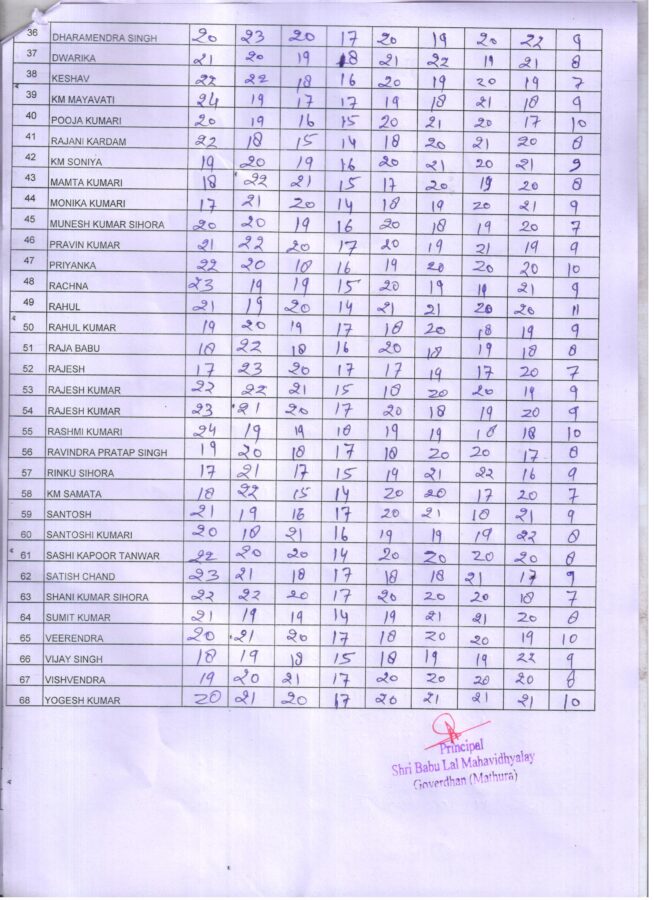 36 DHARAMENDRA SINGH 20 23 20 17 20 19 20 22 9
37 DWARIKA 21 20 19 18 21 22 19 21 8
38 KESHAV 22 22 18 16 20 19 20 19 7
39 KM MAYAVATI 24 19 17 17 19 18 21 18 9
40 POOJA KUMARI 20 19 16 15 20 21 20 17 10
41 RAJANI KARDAM 22 18 15 14 18 20 21 20 8
42 KM SONIYA 19 20 19 16 20 21 20 21 9
43 MAMTA KUMARI 18 22 21 15 17 20 19 20 8
44 MONIKA KUMARI 17 21 20 14 18 19 20 21 9
45 MUNESH KUMAR SIHORA 20 20 19 16 20 18 19 20 7
46 PRAVIN KUMAR 21 22 20 17 20 19 21 19 9
47 PRIYANKA 22 20 18 16 19 20 20 20 10
48 RACHNA 23 19 19 15 20 19 19 21 9
49 RAHUL 21 19 20 14 21 21 20 20 11
50 RAHUL KUMAR 19 20 19 17 18 20 18 19 9
51 RAJA BABU 18 22 18 16 20 18 19 18 8
52 RAJESH 17 23 20 17 17 19 17 20 7
53 RAJESH KUMAR 22 22 21 15 18 20 20 19 9
54 RAJESH KUMAR 23 21 20 17 20 18 19 20 9
55 RASHMI KUMARI 24 19 19 18 19 19 18 18 10
56 RAVINDRA PRATAP SINGH 19 20 18 17 18 20 20 17 8
57 RINKU SIHORA 17 21 17 15 19 21 22 16 9
58 KM SAMATA 18 22 15 14 20 20 17 20 7
59 SANTOSH 21 19 16 17 20 21 18 21 9
60 SANTOSHI KUMARI 20 18 21 16 19 19 19 22 8
61 SASHI KAPOOR TANWAR 22 20 20 14 20 20 20 20 8
62 SATISH CHAND 23 21 18 17 18 18 21 17 9
63 SHANI KUMAR SIHORA 22 22 20 17 20 20 20 18 7
64 SUMIT KUMAR 21 19 19 14 19 21 21 20 8
65 VEERENDRA 20 21 20 17 18 20 20 19 10
66 VIJAY SINGH 18 19 18 15 18 19 19 22 9
67 VISHVENDRA 19 20 21 17 20 20 20 20 8
68 YOGESH KUMAR 20 21 20 17 20 21 21 21 10
Principal
Shri Babu Lal Mahavidhyalay
Goverdhan (Mathura)